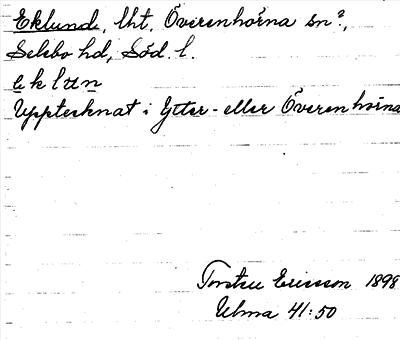 Eklund, lht, Överenhörna sn?,
Selebo hd, Söd. l.
e k l u n
Upptecknat i Ytter- eller Överenhörna
Torsten Ericsson 1898
Ulma 41:50